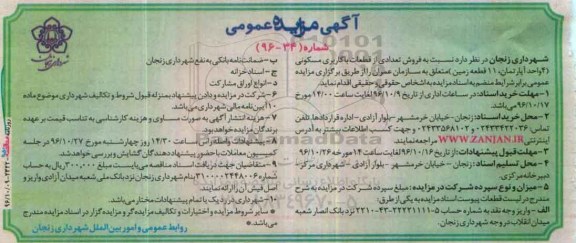 آگهی مزایده عمومی
شماره (۳۴-۹۶)
شهرداری زنجان در نظر دارد نسبت به فروش تعدادی از قطعات با کاربری مسکونی
(۲ واحد آپارتمان، ۱۱ قطعه زمین) متعلق به سازمان عمران را از طریق برگزاری مزایده
عمومی برابر شرایط منضم به اسناد مزایده به اشخاص حقوقی و حقیقی اقدام نماید.
۱-مهلت خرید اسناد: در ساعات اداری از تاریخ ۹۶/۱۰/۹ لغایت ساعت ۱۴/۰۰ مورخ
۹۶/۱۰/۱۷ می‌باشد.
۲-محل خرید اسناد: زنجان - خیابان خرمشهر -بلوار آزادی -اداره قراردادها، تلفن
تماس: ۰۲۴۳۳۴۲۲۰۳۶ و ۰۲۴۳۳۵۶۸۱۰۲ و جهت کسب اطلاعات بیشتر به آدرس
اینترنتی WWW.ZANJAN.IR مراجعه نمایند.
۳-مهلت قبول پیشنهادات: از تاریخ ۹۶/۱۰/۱۶ لغایت ساعت ۱۴ مورخه ۹۶/۱۰/۲۶
۴-محل تسلیم اسناد: زنجان - خیابان خرمشهر -بلوار آزادی -شهرداری مرکز -
دبیرخانه مرکزی.
۵-میزان و نوع سپرده شرکت در مزایده: مبلغ سپرده شرکت در مزایده به شرح
مندرج در لیست قطعات پیوست اسناد مزایده به یکی از طرق:
الف - واریز وجه نقد به شماره حساب ۵-۲۲۲۲۱۱۱۱-۴۳-۲۲۱۰ نزد بانک انصار شعبه
میدان انقلاب در وجه شهرداری زنجان.
ب - ضمانت‌نامه بانکی به نفع شهرداری زنجان
ج - اسناد خزانه
د - انواع اوراق مشارکت
۶- شرکت در مزایده و دادن پیشنهاد بمنزله قبول شروط و تکالیف شهرداری موضوع ماده
۱۰ آیین‌نامه مالی شهرداری می‌باشد.
۷- هزینه انتشار آگهی به صورت مساوی و هزینه کارشناسی به تناسب قیمت بر عهده
برندگان مزایده خواهد بود.
۸- پیشنهادات واصله در ساعت ۱۴/۳۰ روز چهارشنبه مورخ ۹۶/۱۰/۲۷ در جلسه
کمیسیون معاملات با حضور پیشنهاددهندگان گشایش و بررسی خواهد شد.
۹- متقاضیان جهت دریافت اسناد مناقصه می‌بایست مبلغ ۳۰۰/۰۰۰ ریال به حساب
شماره ۳۱۰۰۰۰۲۴۴۸۰۰۶ بنام شهرداری زنجان نزد بانک ملی شعبه میدان آزادی واریز و
اصل فیش آن را ارائه نمایند.
۱۰- شهرداری در رد یک یا تمام پیشنهادات مختار می‌باشد.
* سایر شروط مزایده و اختیارات و تکالیف مزایده‌گر و مزایده‌گزار در اسناد مزایده مندرج
می‌باشد.*
روابط عمومی و امور بین‌الملل شهرداری زنجان